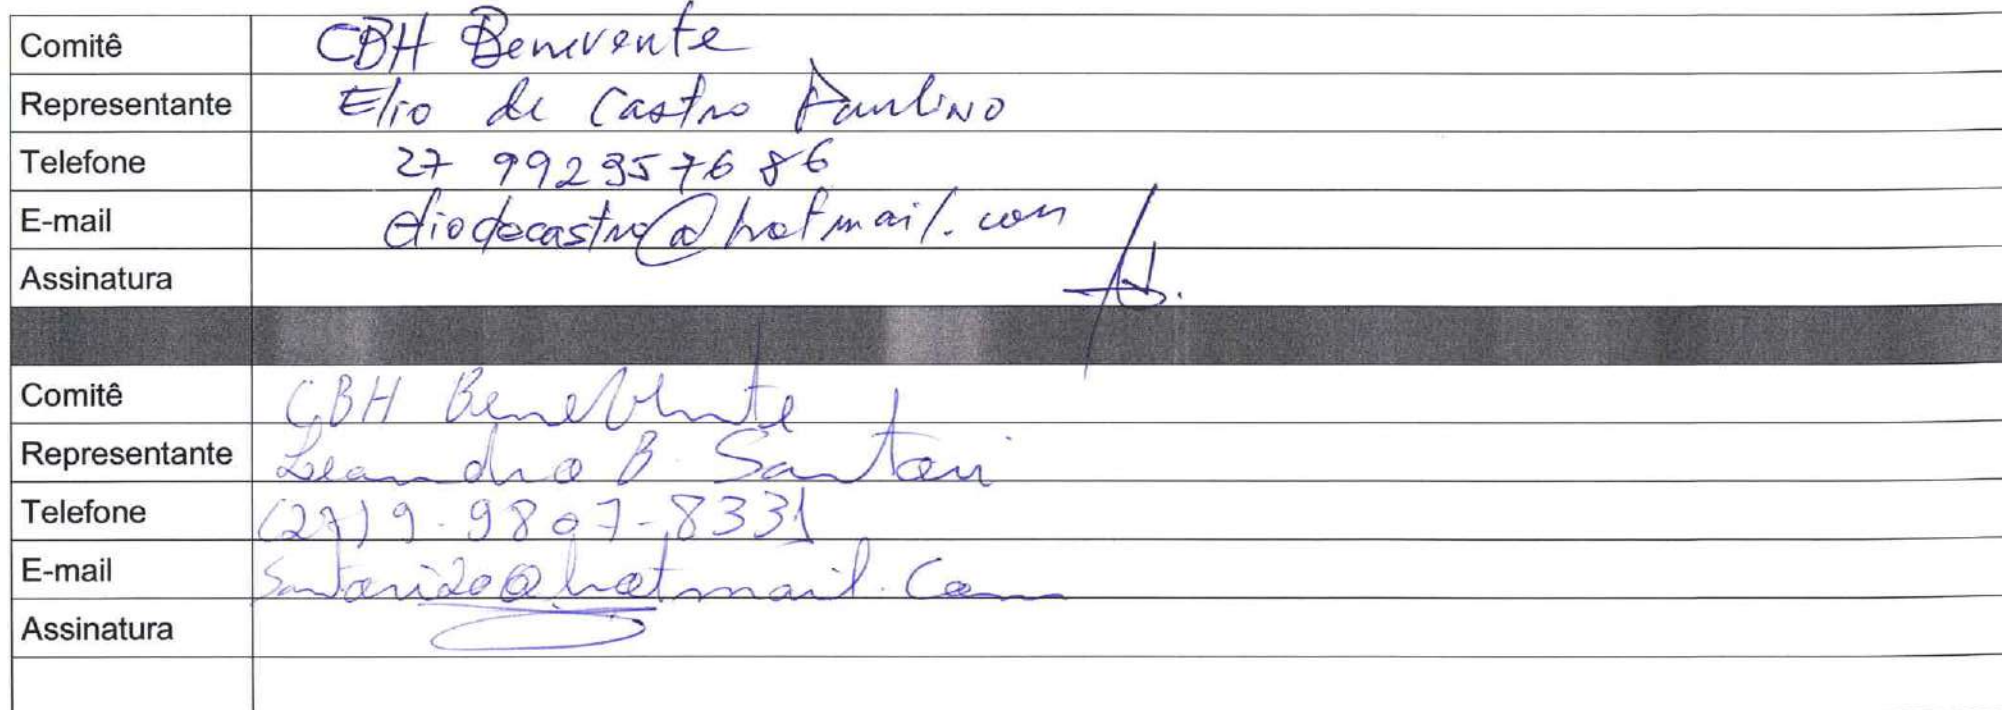 Comitê CBH Benevente
Representante Elio de Castro Paulino
Telefone 27 992357686
E-mail eliodecastro@hotmail.com
Assinatura
Comitê CBH Benebente
Representante Leandro B. Santori
Telefone (27) 9.9807-8331
E-mail Santori20@hotmail.com
Assinatura